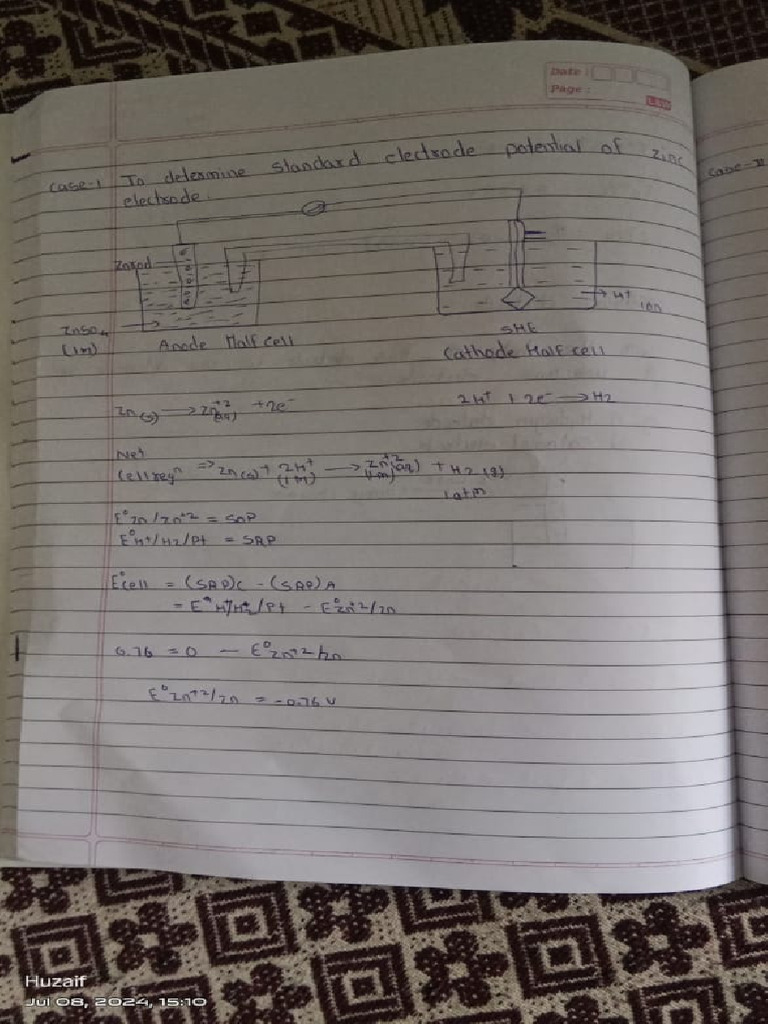 Date :
Page :
case-1 To determine standard electrode potential of zinc
electrode.
case-
Zn rod
H+ ion
ZnSO4
(1m)
Anode Half cell
SHE
Cathode Half cell
Zn(s) → Zn+2(aq) + 2e-
2H+ + 2e- → H2
Net
Cell rexn => Zn(s) + 2H+ (1m) → Zn+2(aq) (1m) + H2 (g)
1atm
E°Zn/Zn+2 = SOP
E°H+/H2/Pt = SRP
E°cell = (SRP)C - (SRP)A
= E°H+/H2/Pt - E°Zn+2/Zn
0.76 = 0 - E°Zn+2/Zn
E°Zn+2/Zn = -0.76 V
Huzaif
Jul 08, 2024, 15:10